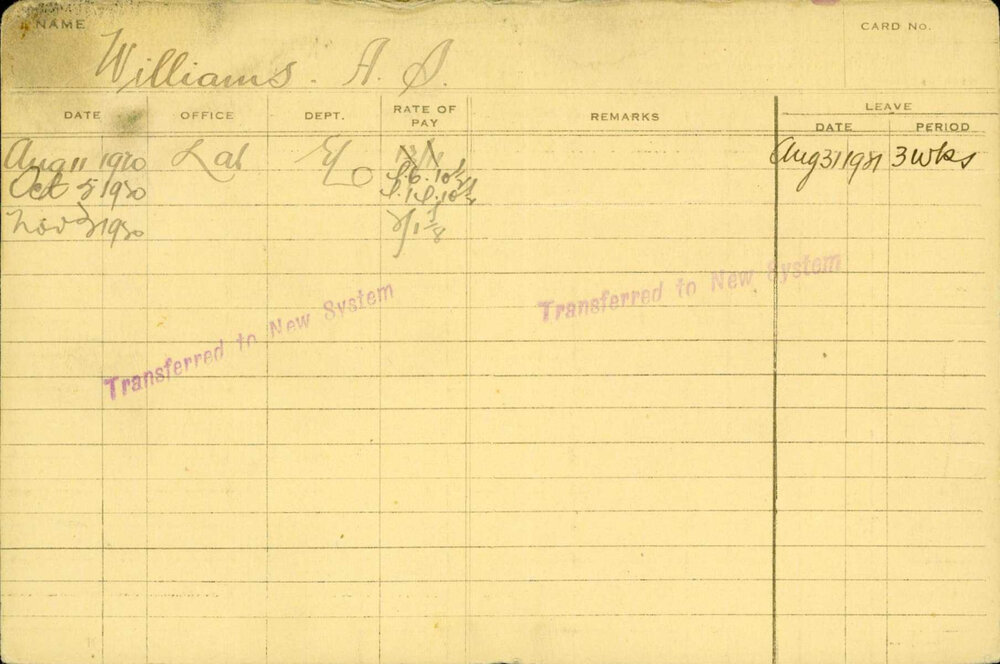 NAME CARD No.
Williams. A. S.
DATE OFFICE DEPT. RATE OF PAY REMARKS LEAVE
DATE PERIOD
Aug 11 1920 Lab Aug 31 1921 3 wks
Oct 5 1920
Nov 1920
Transferred to New System
Transferred to New System